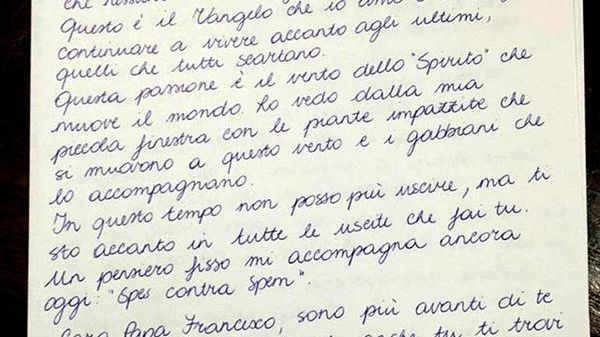 Questo è il Vangelo che io amo
continuare a vivere accanto agli ultimi,
quelli che tutti scartano.
Questa passione è il vento dello "Spirito" che
muove il mondo. Lo vedo dalla mia
piccola finestra con le piante impazzite che
si muovono a questo vento e i gabbiani che
lo accompagnano.
In questo tempo non posso più uscire, ma ti
sto accanto in tutte le uscite che fai tu.
Un pensiero fisso mi accompagna ancora
oggi: "Spes contra Spem".
Caro Papa Francesco, sono più avanti di te
anche tu ti trovi